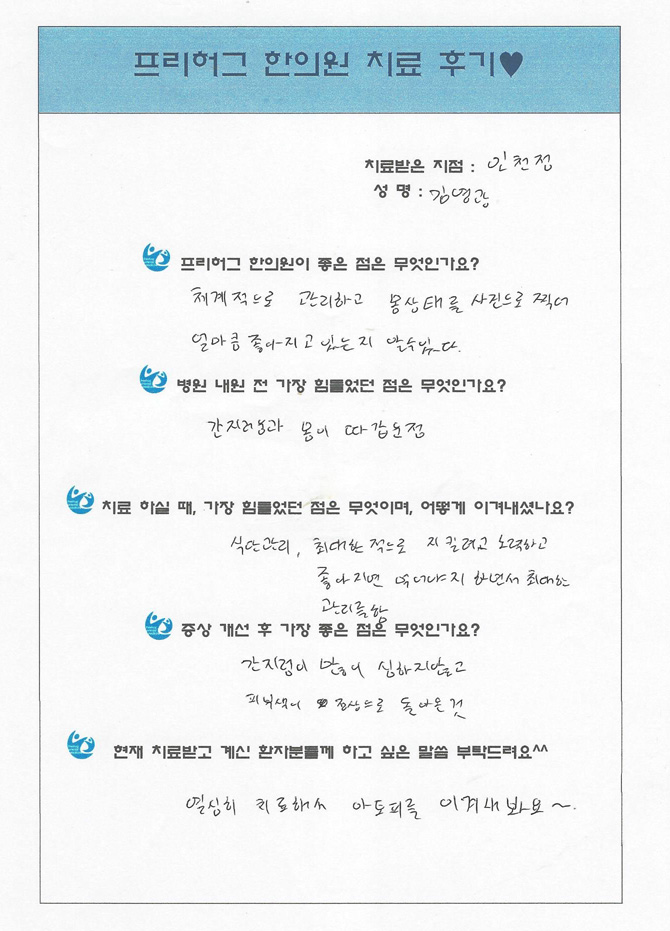 프리허그 한의원 치료 후기♥
치료받은 지점 : 인천점
성 명 : 김영광
프리허그 한의원이 좋은 점은 무엇인가요?
체계적으로 관리하고 몸상태를 사진으로 찍어
얼마큼 좋아지고 있는지 알수있다.
병원 내원 전 가장 힘들었던 점은 무엇인가요?
간지러움과 몸이 따갑운점
치료 하실 때, 가장 힘들었던 점은 무엇이며, 어떻게 이겨내셨나요?
식단관리, 최대한적으로 지킬려고 노력하고
좋아지면 먹어야지 하면서 최대한
관리를함
증상 개선 후 가장 좋은 점은 무엇인가요?
간지럼이 많이 심하지않고
피부색이 정상으로 돌아온것
현재 치료받고 계신 환자분들께 하고 싶은 말씀 부탁드려요^^
열심히 치료해서 아토피를 이겨내봐요~.